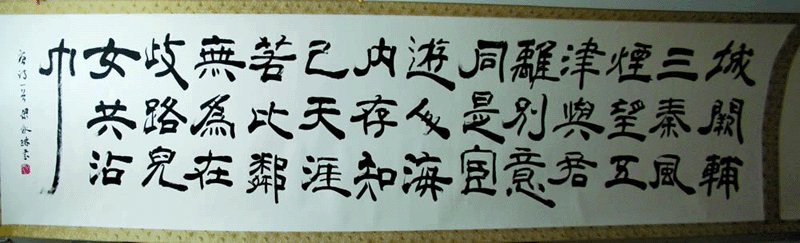 城闕輔
三秦風
煙望五
津與君
離別意
同是宦
遊人海
内存知
己天涯
若比鄰
無為在
歧路兒
女共沾
巾
唐詩一首